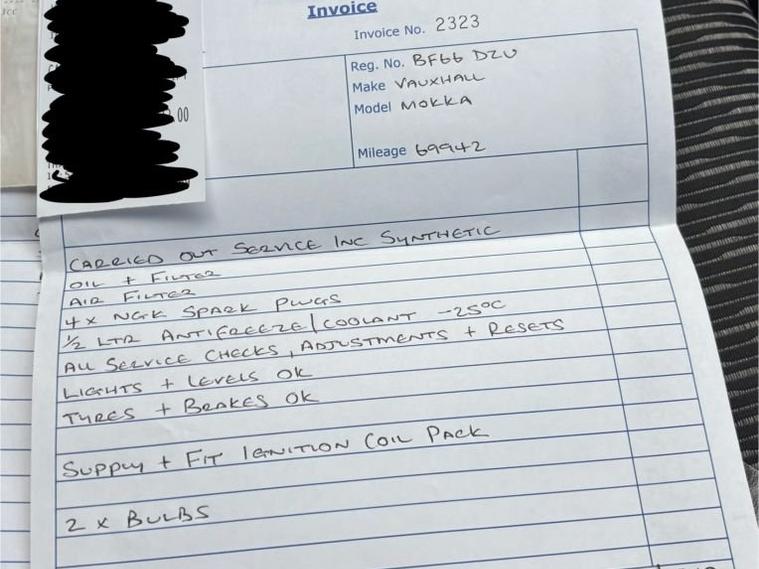 Invoice
Invoice No. 2323
.00
Reg. No. BF66 DZU
Make VAUXHALL
Model MOKKA
Mileage 69942
CARRIED OUT SERVICE INC SYNTHETIC
OIL + FILTER
AIR FILTER
4 x NGK SPARK PLUGS
½ LTR ANTIFREEZE/COOLANT -25°C
ALL SERVICE CHECKS, ADJUSTMENTS + RESETS
LIGHTS + LEVELS OK
TYRES + BRAKES OK
SUPPLY + FIT IGNITION COIL PACK
2 x BULBS